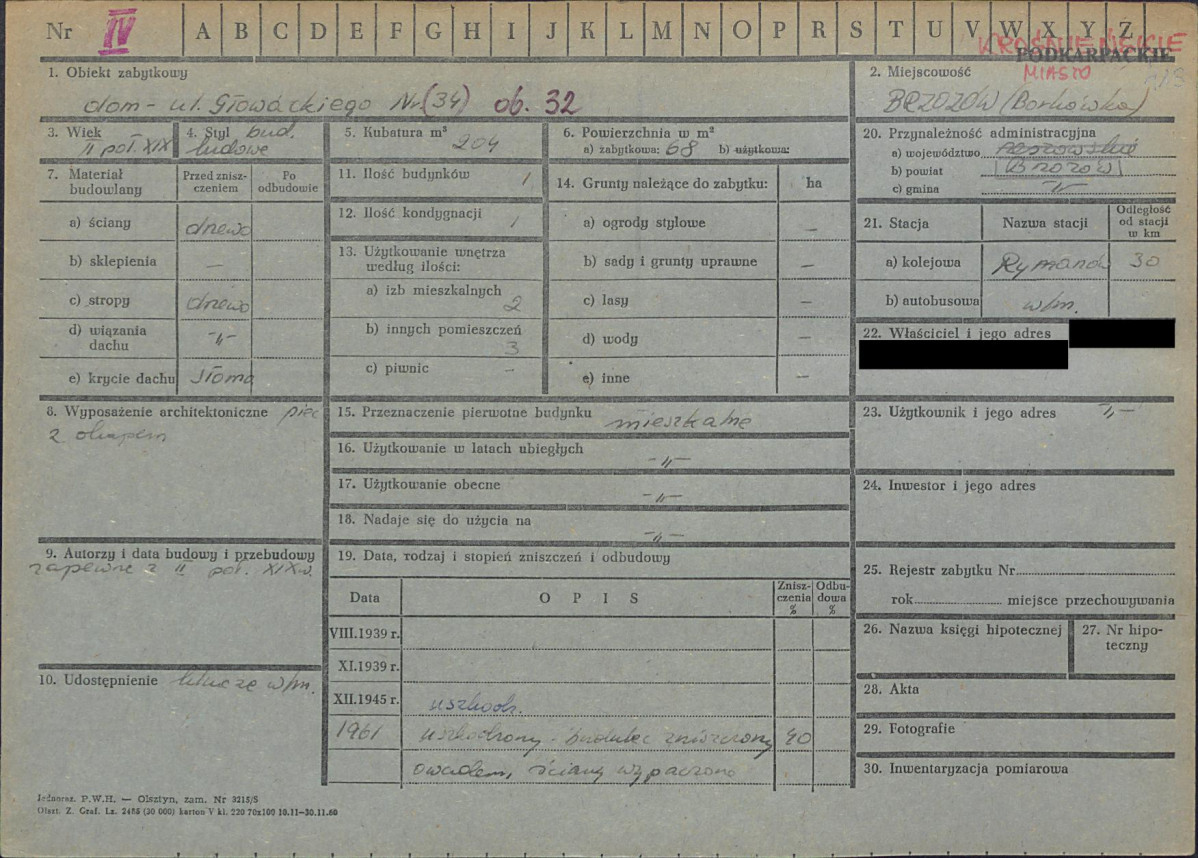 Nr IV A B C D E F G H I J K L M N O P R S T U V W X Y Z
KROŚNIEŃSKIE
PODKARPACKIE
MIASTO
1. Obiekt zabytkowy
dom - ul. Głowackiego Nr (34) ob. 32
2. Miejscowość
BRZOZÓW (Borkówka)
3. Wiek
II poł. XIX
4. Styl bud.
ludowe
5. Kubatura m³
204
6. Powierzchnia w m²
a) zabytkowa: 68 b) użytkowa:
20. Przynależność administracyjna
a) województwo rzeszowskie
b) powiat Brzozów
c) gmina -"-
7. Materiał budowlany
Przed znisz-
czeniem
Po
odbudowie
a) ściany drewo
b) sklepienia —
c) stropy drewo
d) wiązania
dachu -"-
e) krycie dachu słoma
11. Ilość budynków 1
12. Ilość kondygnacji 1
13. Użytkowanie wnętrza
według ilości:
a) izb mieszkalnych
2
b) innych pomieszczeń
3
c) piwnic -
14. Grunty należące do zabytku: ha
a) ogrody stylowe —
b) sady i grunty uprawne —
c) lasy —
d) wody —
e) inne —
21. Stacja Nazwa stacji Odległość
od stacji
w km
a) kolejowa Rymanów 30
b) autobusowa w/m.
22. Właściciel i jego adres
8. Wyposażenie architektoniczne piec
z okapem
15. Przeznaczenie pierwotne budynku mieszkalne
16. Użytkowanie w latach ubiegłych
-"-
17. Użytkowanie obecne
-"-
18. Nadaje się do użycia na
-"-
23. Użytkownik i jego adres -"-
24. Inwestor i jego adres
9. Autorzy i data budowy i przebudowy
zapewne z II poł. XIX w.
19. Data, rodzaj i stopień zniszczeń i odbudowy
Data O P I S Znisz-
czenia
% Odbu-
dowa
%
VIII.1939 r.
XI.1939 r.
XII.1945 r. uszkodz.
1961 uszkodzony - budulec zniszczony 40
owadem, ściany wypaczone
10. Udostępnienie klucze w/m.
25. Rejestr zabytku Nr
rok miejsce przechowywania
26. Nazwa księgi hipotecznej
27. Nr hipo-
teczny
28. Akta
29. Fotografie
30. Inwentaryzacja pomiarowa
Jednoraz. P.W.H. — Olsztyn, zam. Nr 3215/S
Olszt. Z. Graf. Lz. 2485 (30 000) karton V kl. 220 70x100 10.11—30.11.60